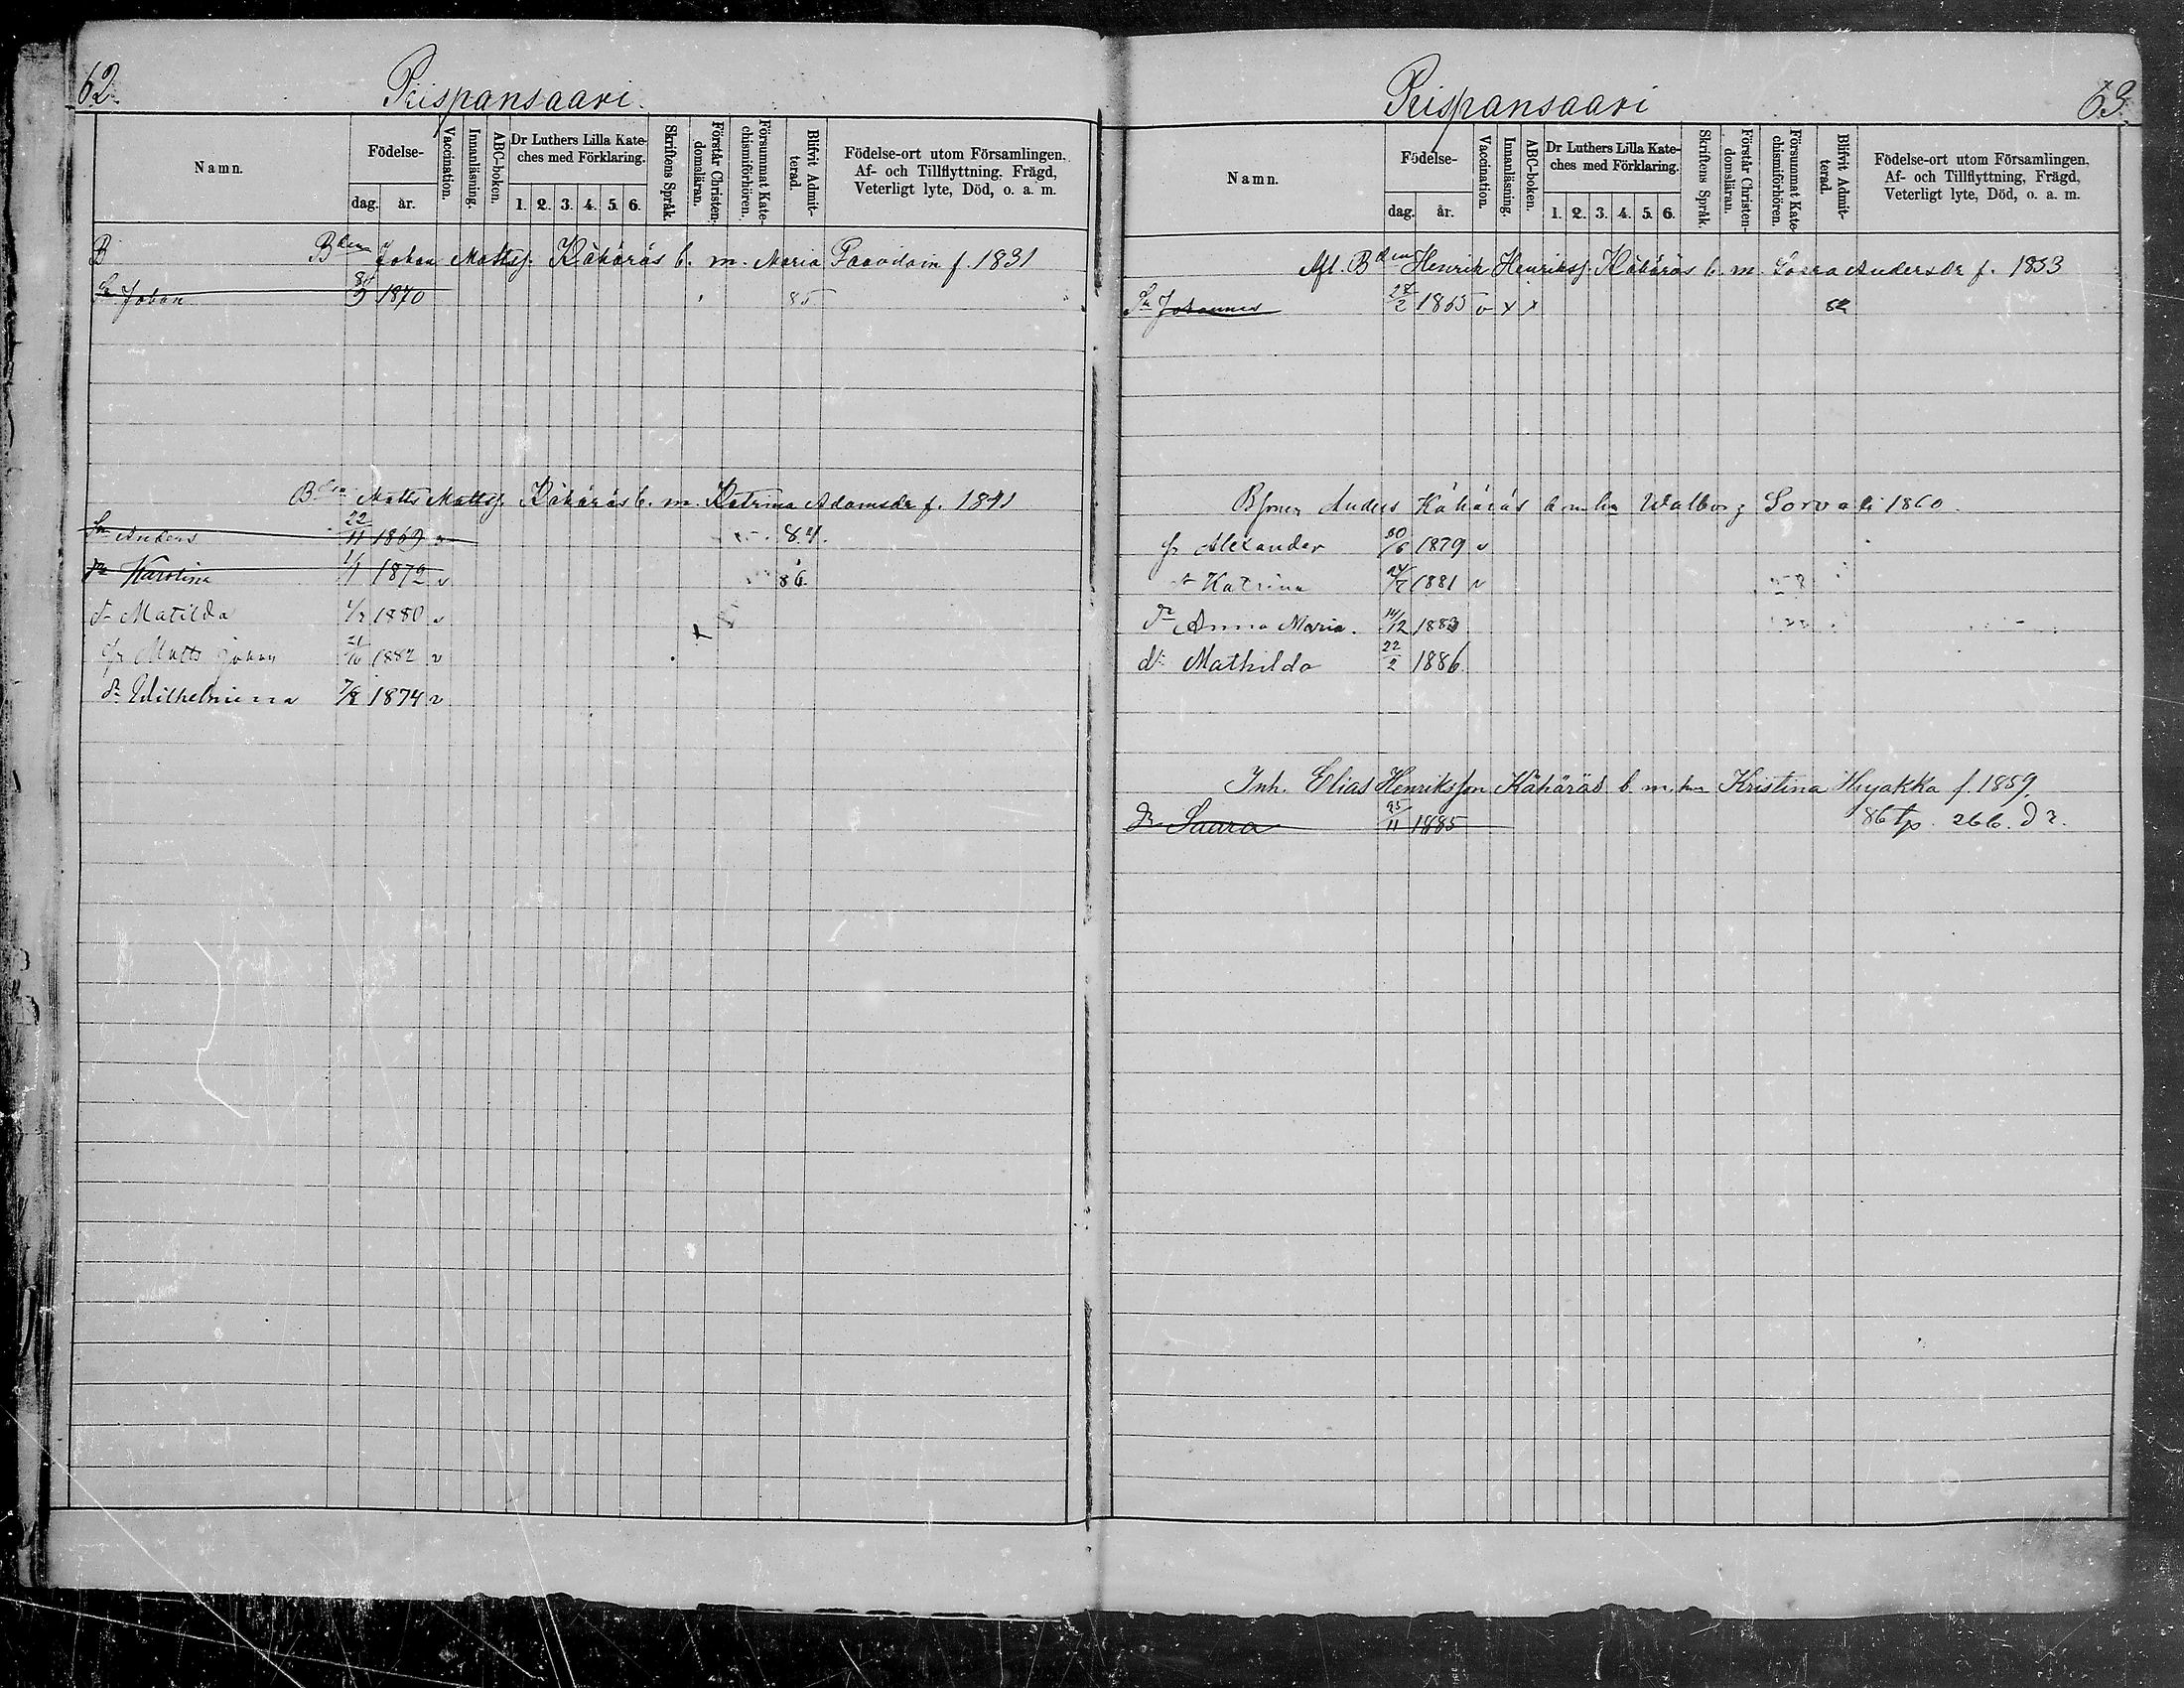 62.
Pispansaari.
Namn.
Födelse-
dag.
år.
Vaccination.
Innanläsning.
ABC-boken.
Dr Luthers Lilla Kate-
ches med Förklaring.
1. 2. 3. 4. 5. 6.
Skriftens Språk.
Förstår Christen-
domsläran.
Försummat Kate-
chismiförhören.
Blifvit Admit-
terad.
Födelse-ort utom Församlingen.
Af- och Tillflyttning. Frägd,
Veterligt lyte, Död, o. a. m.
B Bden Johan Mattss. Kähäräs b. m. Maria Paavolain f. 1831
Sn Johan 1870 85
Bden Matts Mattss. Kähäräs b. m. Katrina Adamsdr f. 1841
Sn Anders 22/11 1869 v 84.
dr Karolina 1/1 1872 v 86.
dr Matilda 1880 v
Matts Johan 21/10 1882 v
dr Wilhelmiina 1874 v
Pispansaari
63.
Namn.
Födelse-
dag.
år.
Vaccination.
Innanläsning.
ABC-boken.
Dr Luthers Lilla Kate-
ches med Förklaring.
1. 2. 3. 4. 5. 6.
Skriftens Språk.
Förstår Christen-
domsläran.
Försummat Kate-
chismiförhören.
Blifvit Admit-
terad.
Födelse-ort utom Församlingen.
Af- och Tillflyttning, Frägd,
Veterligt lyte, Död, o. a. m.
Afl. Bden Henrik Henrikss. Kähäräs b. m. Andersdr f. 1833
Sn Johannes 27/2 1865 v x x
Anders Kähäräs Walborg Sorvali 1860.
Alexander 30/6 1879 v
dr Katrina 24/7 1881 v
dr Anna Maria. 14/12 1883
dr Mathilda 22/2 1886.
Inh. Elias Henriksson Kähäräs b. m. hu Kristina Hyökkä f. 1859
dr Saara 25/11 1885 86 266.